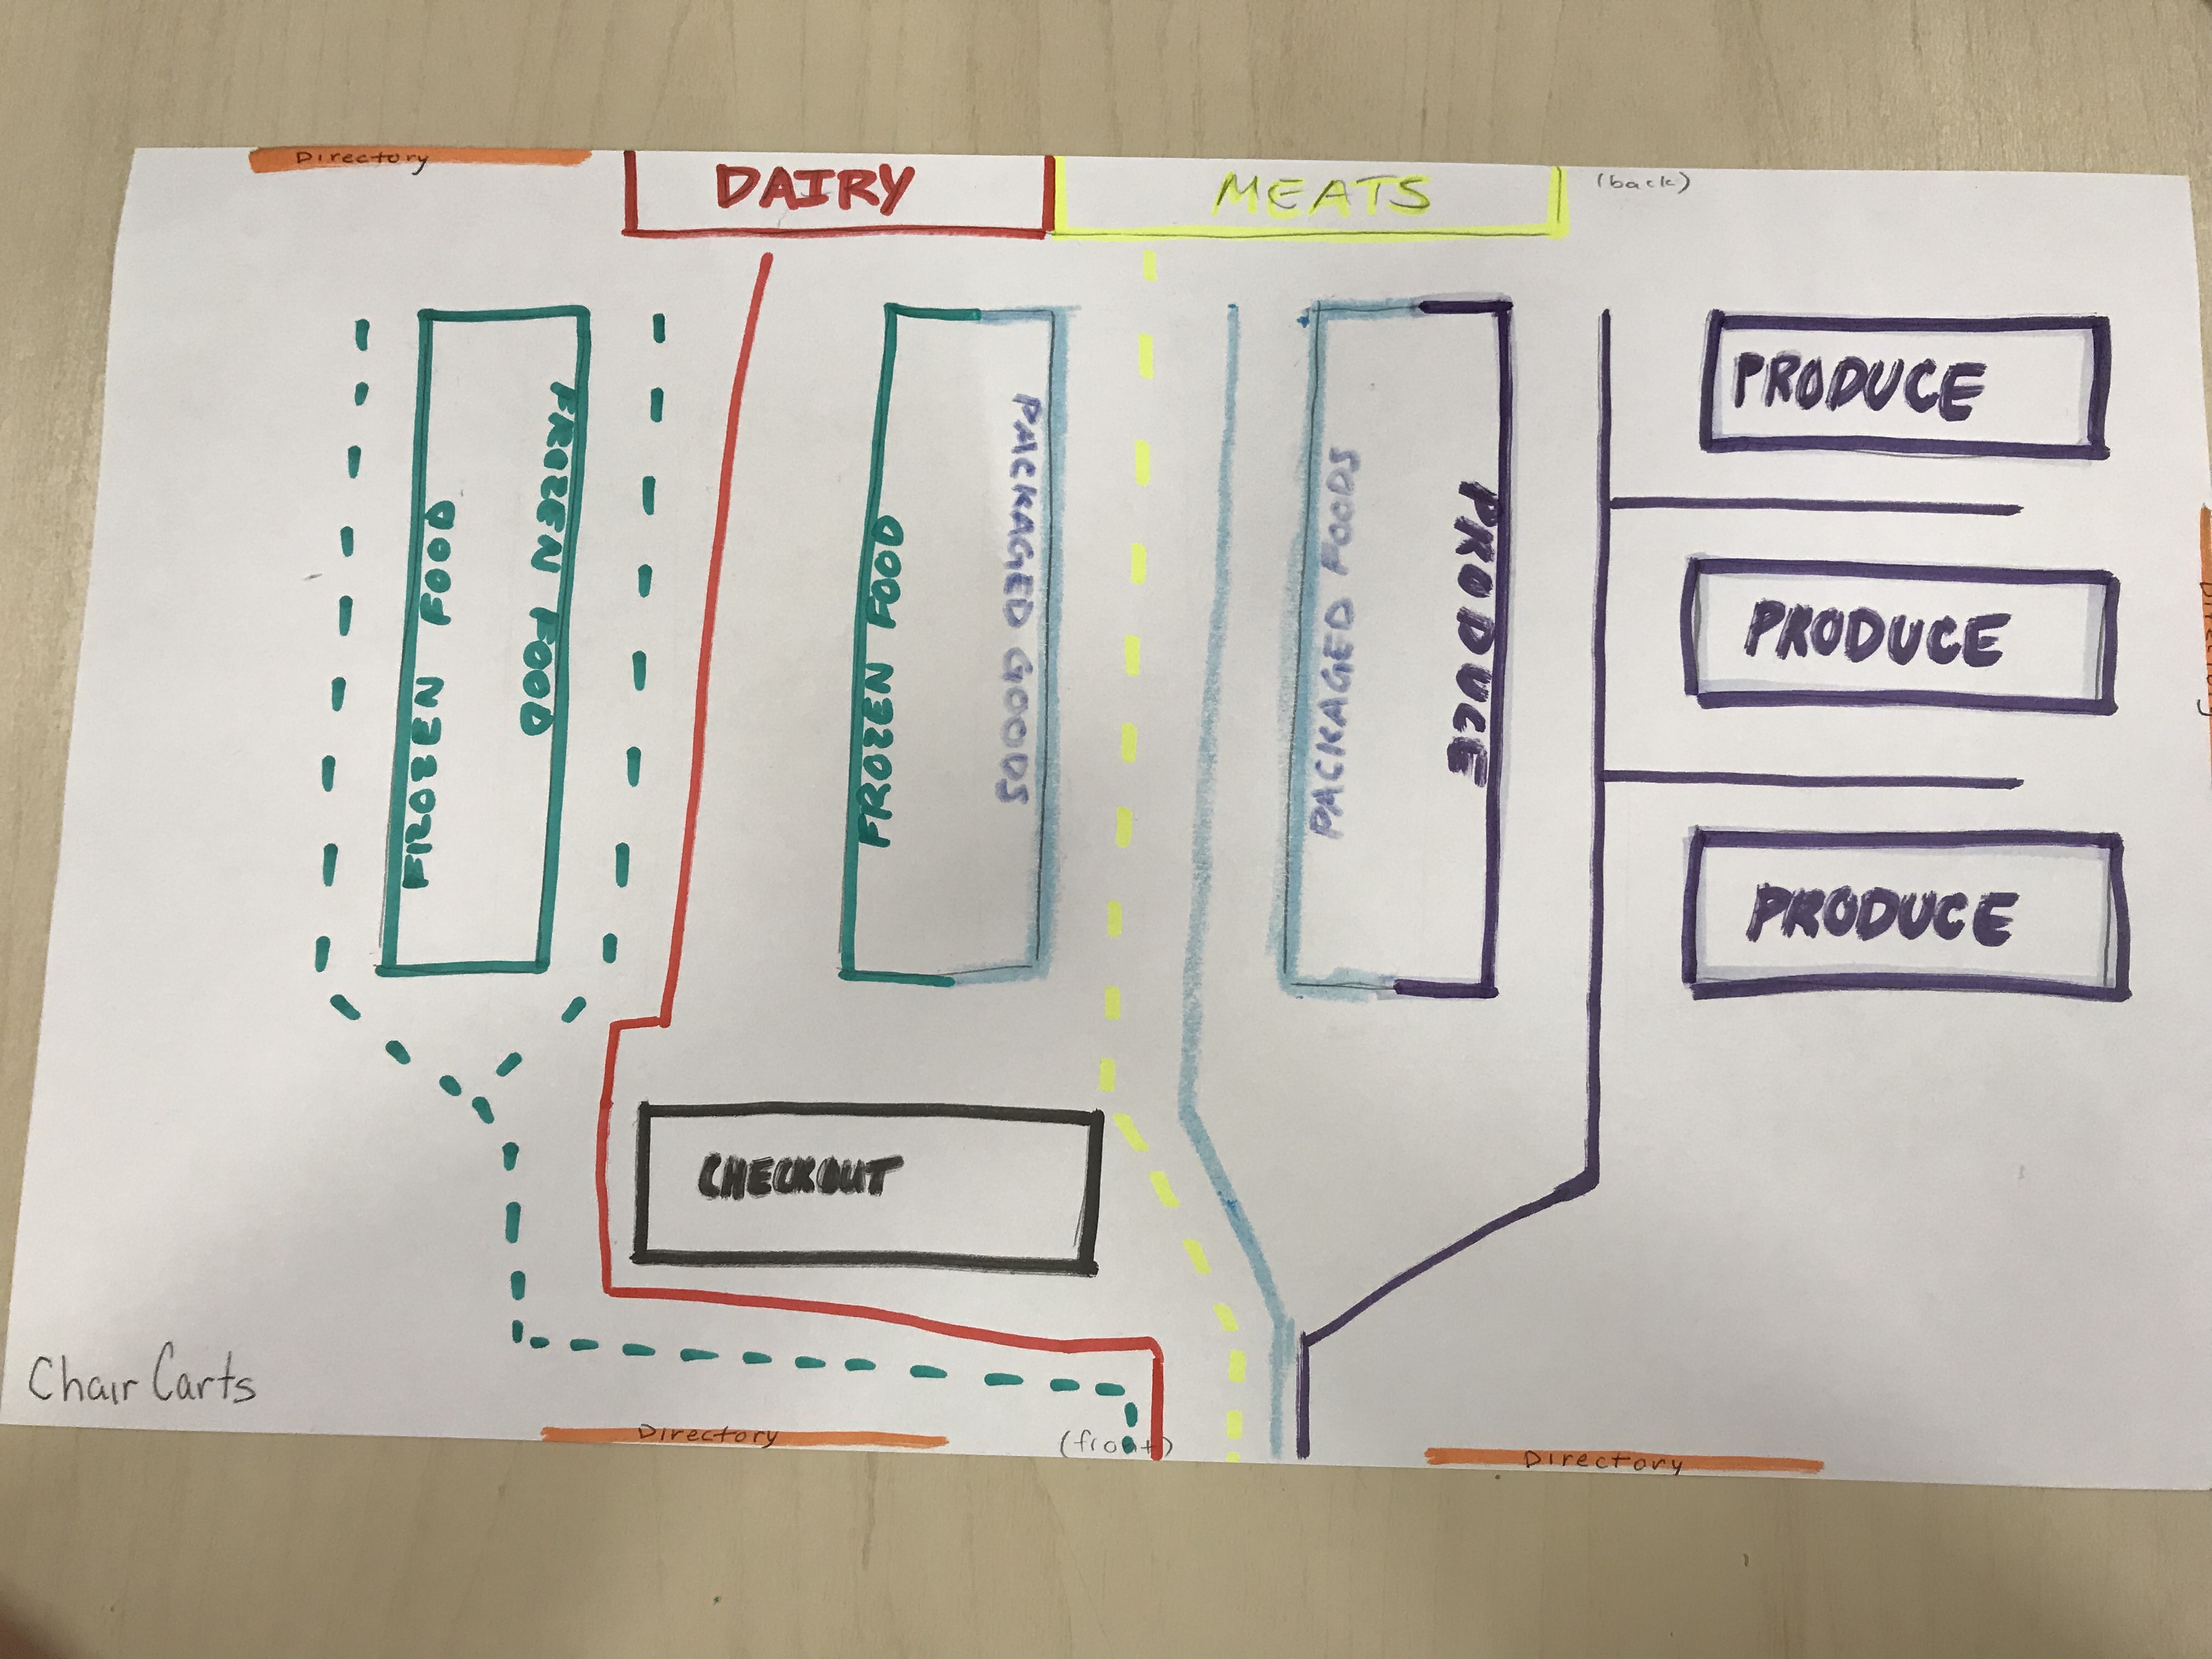 Directory
DAIRY
MEATS
(back)
FROZEN FOOD
FROZEN FOOD
FROZEN FOOD
PACKAGED GOODS
PACKAGED FOODS
PRODUCE
PRODUCE
PRODUCE
PRODUCE
Directory
CHECKOUT
Chair Carts
Directory
(front)
Directory